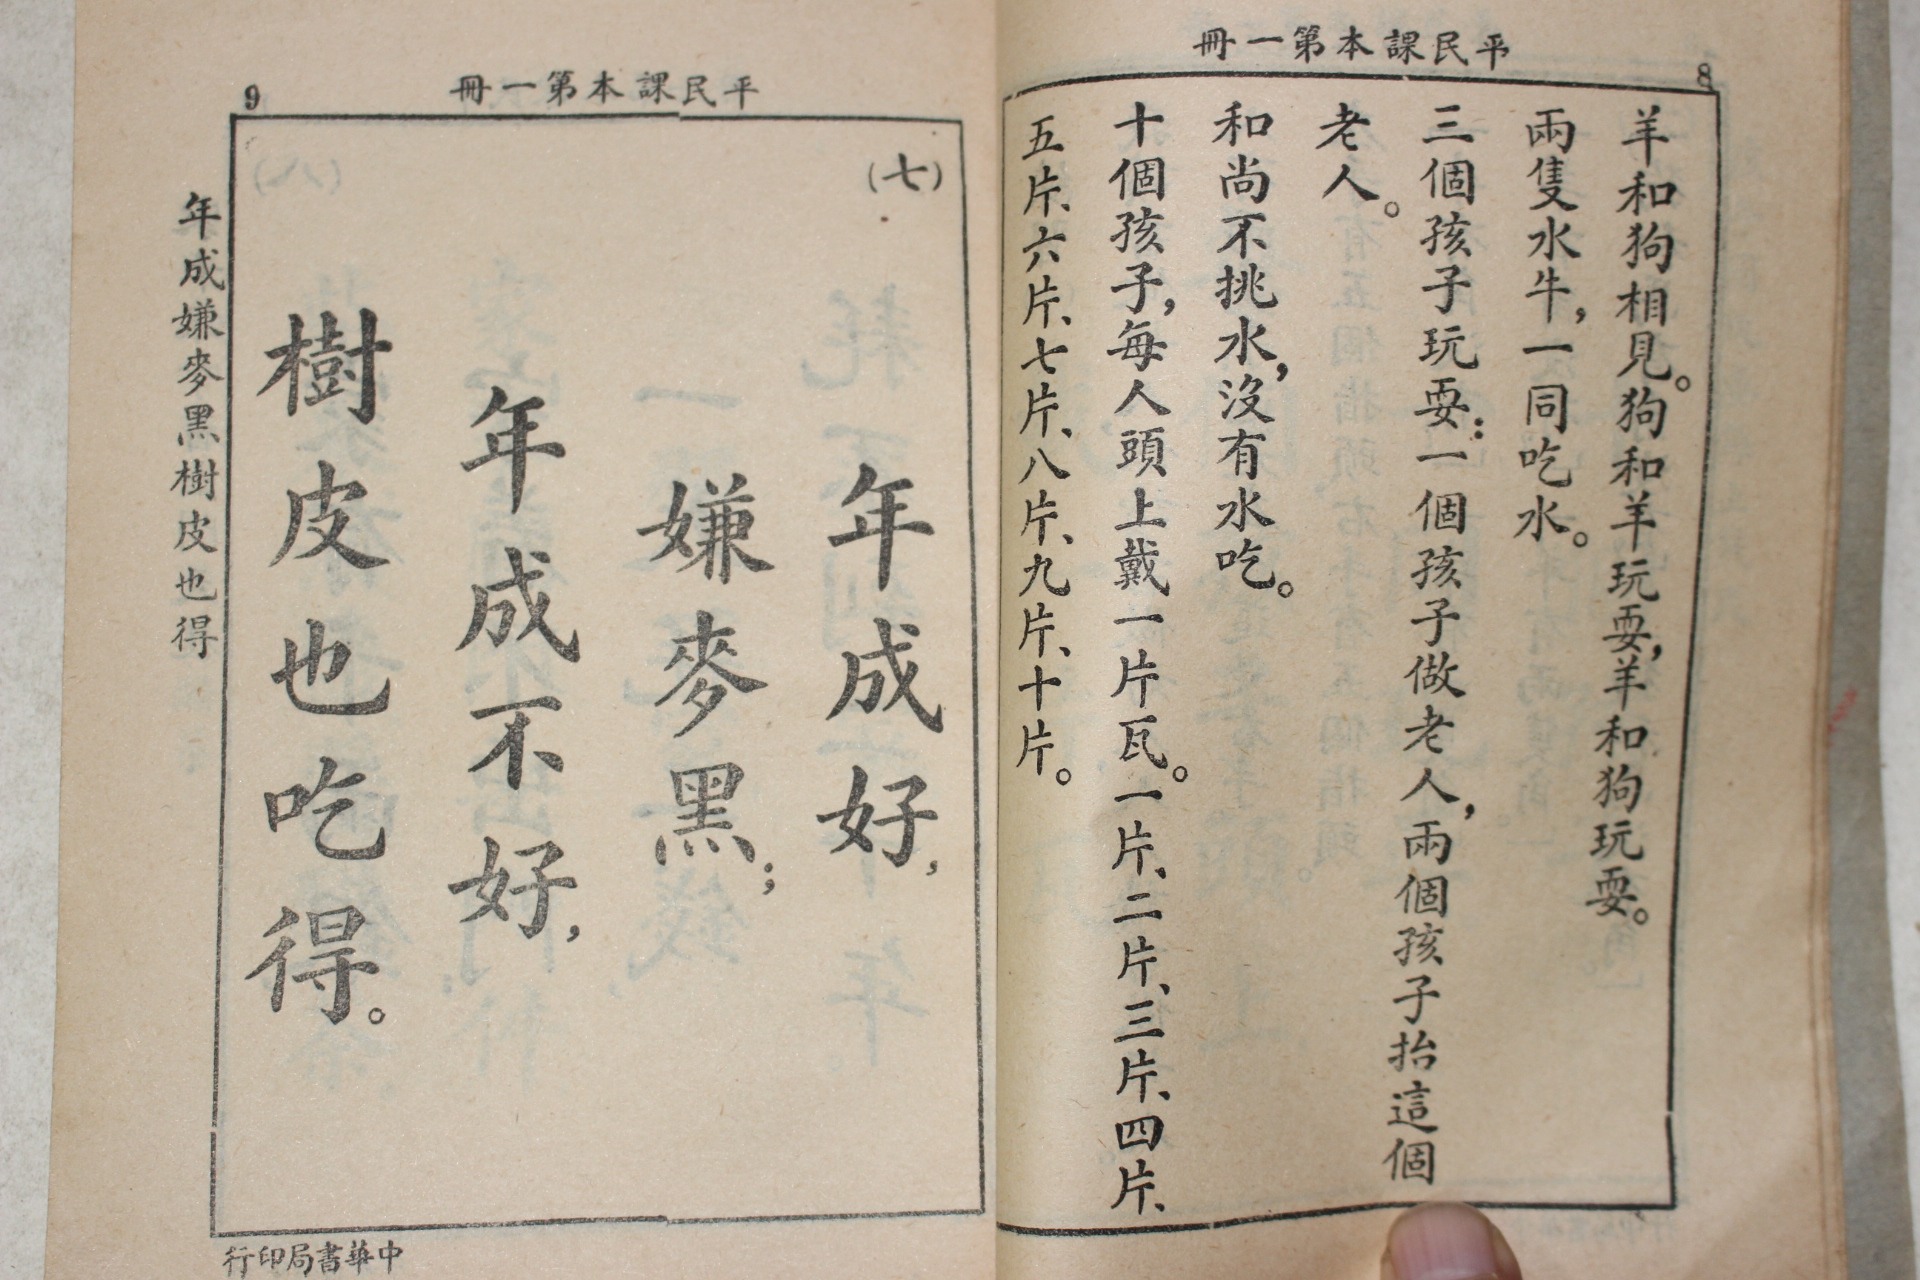 平民課本第一冊
8
羊和狗相見。狗和羊玩耍,羊和狗玩耍。
兩隻水牛,一同吃水。
三個孩子玩耍:一個孩子做老人,兩個孩子抬這個
老人。
和尚不挑水,沒有水吃。
十個孩子,每人頭上戴一片瓦。一片、二片、三片、四片、
五片、六片、七片、八片、九片、十片。
平民課本第一冊
9
(七)
年成好,
嫌麥黑;
年成不好,
樹皮也吃得。
年成嫌麥黑樹皮也得
中華書局印行